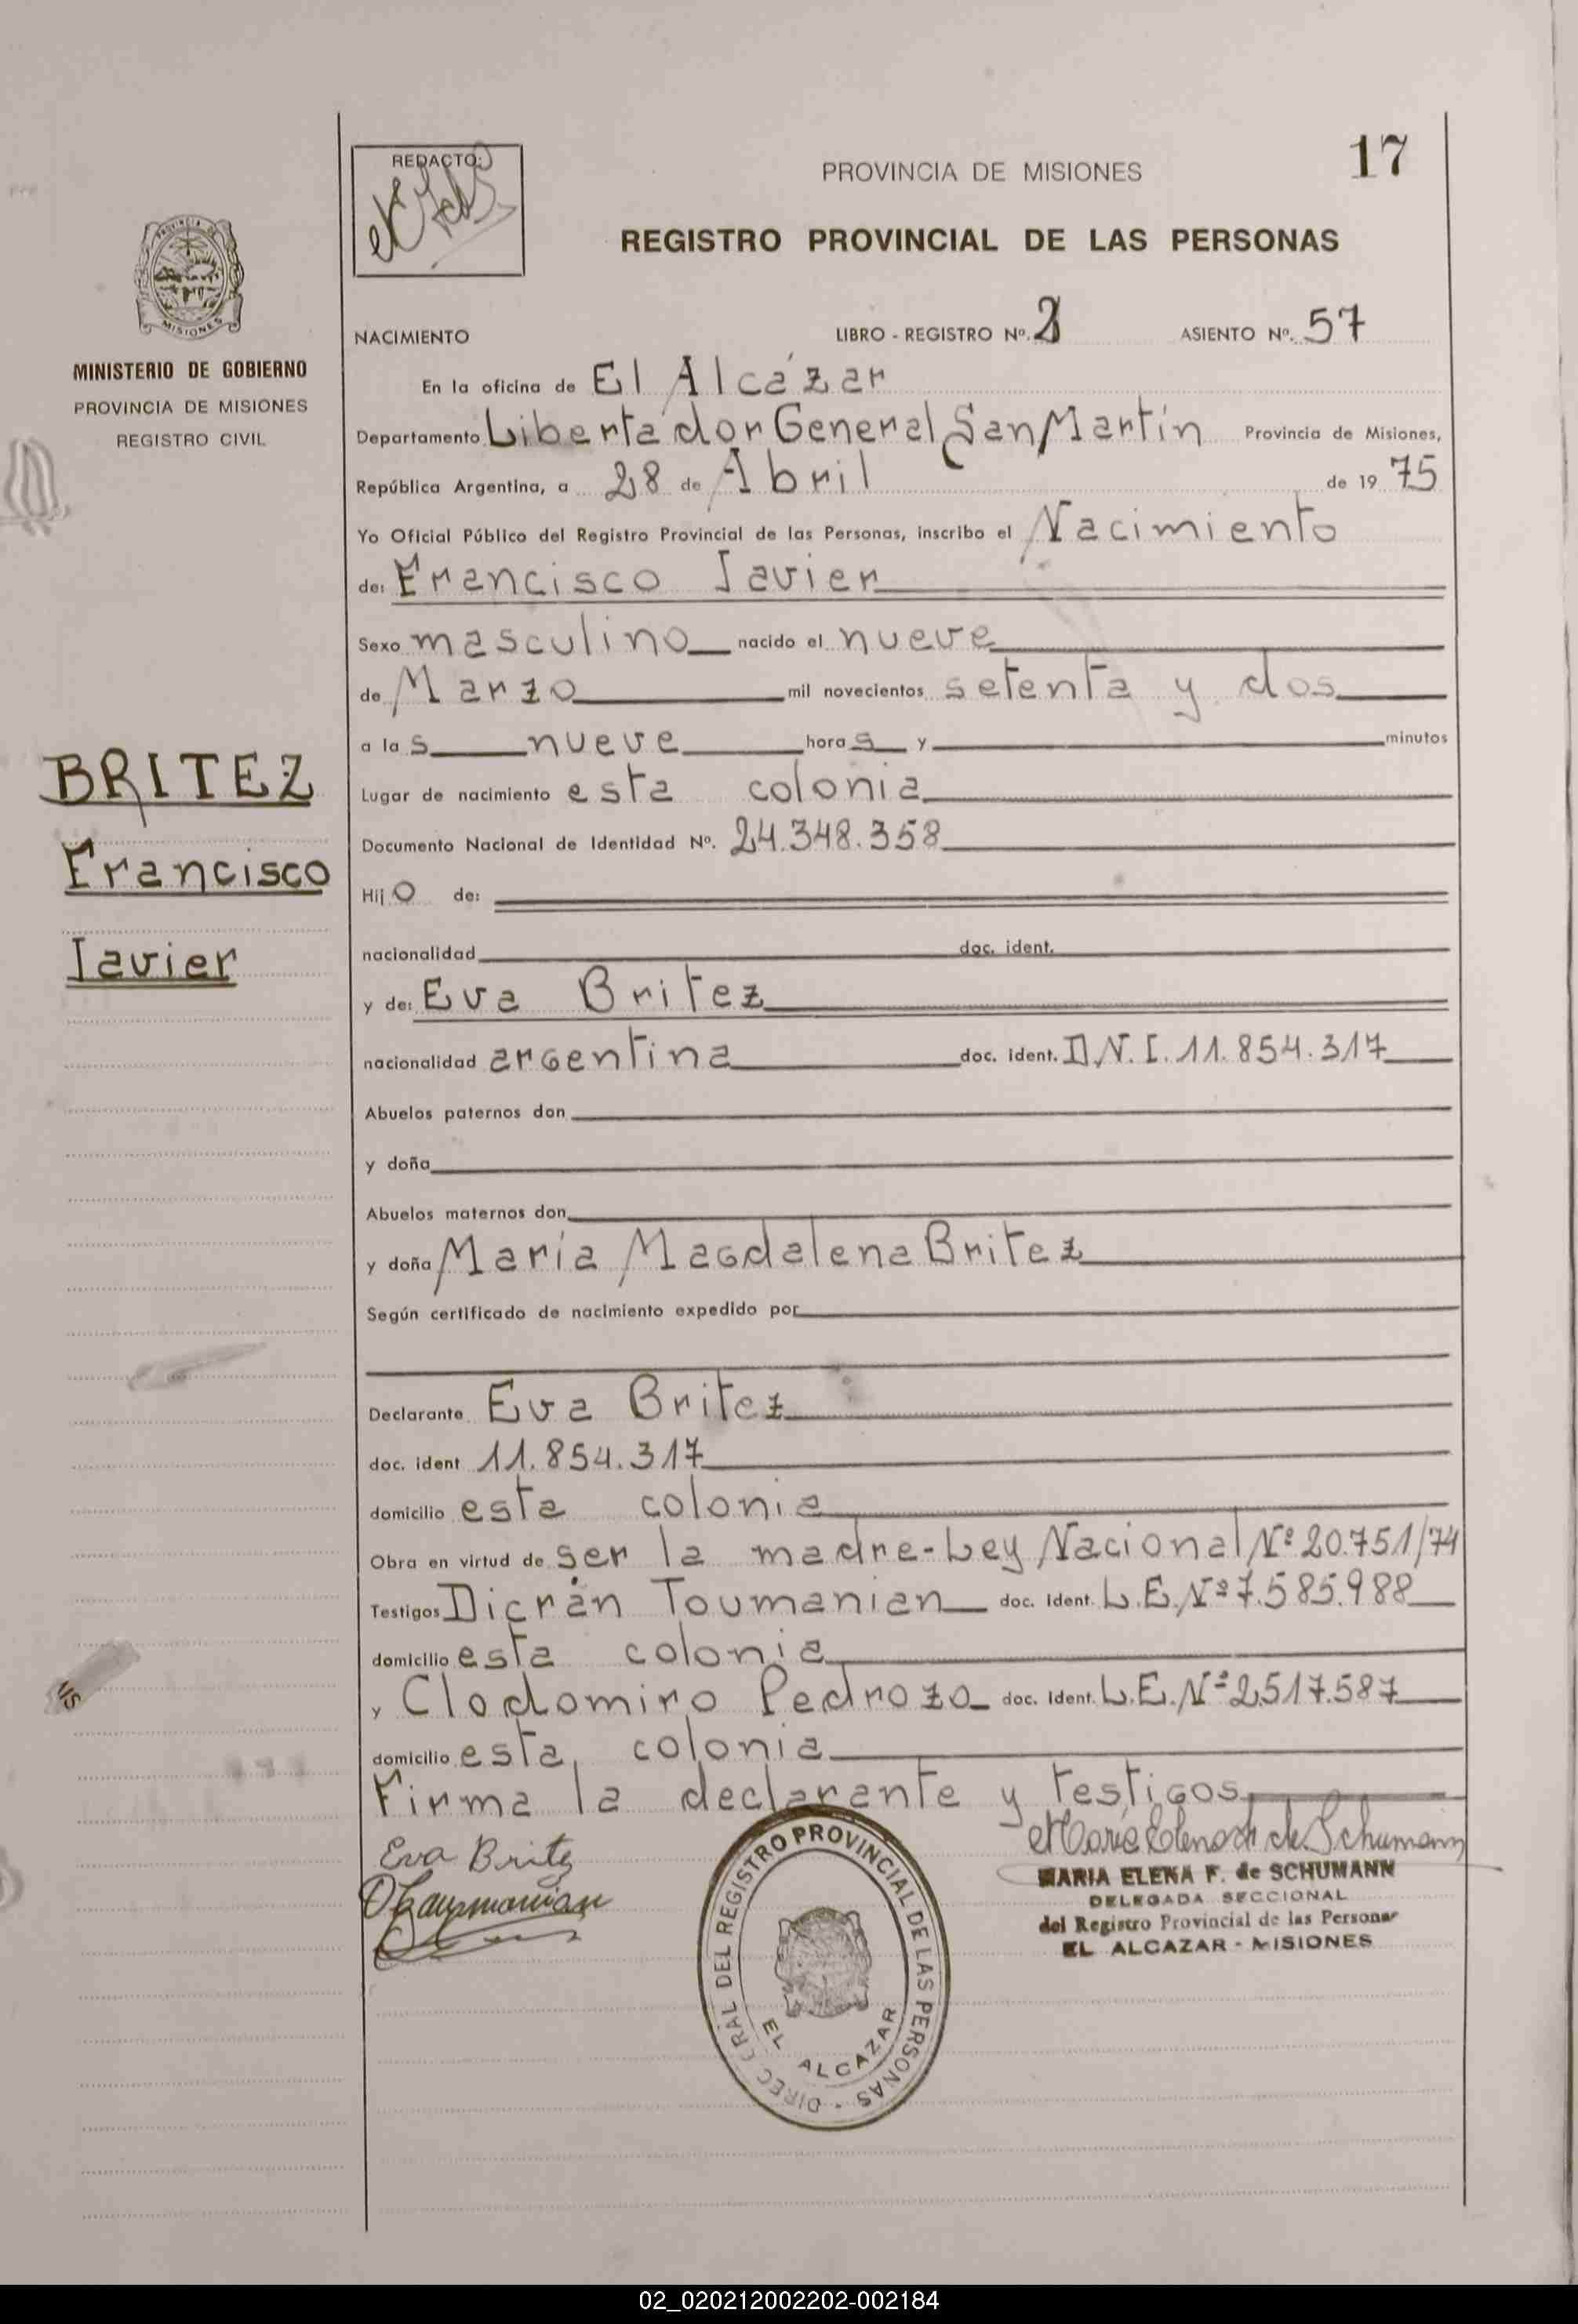 REDACTO:
PROVINCIA DE MISIONES
17
REGISTRO PROVINCIAL DE LAS PERSONAS
PROVINCIA DE
MISIONES
MINISTERIO DE GOBIERNO
PROVINCIA DE MISIONES
REGISTRO CIVIL
NACIMIENTO LIBRO - REGISTRO Nº. ASIENTO Nº. 57
En la oficina de El Alcázar
Departamento Libertador General San Martín Provincia de Misiones,
República Argentina, a 28 de Abril de 19 75
Yo Oficial Público del Registro Provincial de las Personas, inscribo el Nacimiento
de: Francisco Javier
Sexo masculino nacido el nueve
de Marzo mil novecientos setenta y dos
a las nueve horas y minutos
BRITEZ
Francisco
Javier
Lugar de nacimiento esta colonia
Documento Nacional de Identidad Nº. 24.348.358
Hijo de:
nacionalidad doc. ident.
y de: Eva Britez
nacionalidad argentina doc. ident. D.N.I. 11.854.317
Abuelos paternos don
y doña
Abuelos maternos don
y doña María Magdalena Britez
Según certificado de nacimiento expedido por
Declarante Eva Britez
doc. ident 11.854.317
domicilio esta colonia
Obra en virtud de ser la madre-Ley Nacional Nº 20.751/74
Testigos Dicrán Toumanian doc. Ident. L.E.Nº 7.585.988
domicilio esta colonia
y Clodomiro Pedrozo doc. Ident. L.E.Nº 2.517.587
domicilio esta colonia
Firma la declarante y testigos
Eva Britez
MARIA ELENA F. de SCHUMANN
DELEGADA SECCIONAL
del Registro Provincial de las Personas
EL ALCAZAR - MISIONES
DIREC ERAL DEL REGISTRO PROVINCIAL DE LAS PERSONAS
EL ALCAZAR
02_020212002202-002184